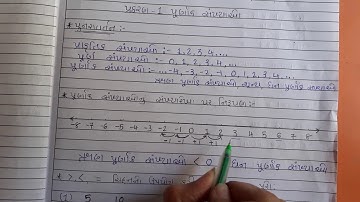 પ્રકરણ-1 પૂર્ણાંક સંખ્યાઓ
* પુનરાવર્તન :-
પ્રાકૃતિક સંખ્યાઓ :- 1, 2, 3, 4...
પૂર્ણ સંખ્યાઓ :- 0, 1, 2, 3, 4...
પૂર્ણાંક સંખ્યાઓ :- ...-4, -3, -2, -1, 0, 1, 2, 3, 4...
* પૂર્ણાંક સંખ્યાઓનું સંખ્યારેખા પર નિરૂપણ:-
-8 -7 -6 -5 -4 -3 -2 -1 0 1 2 3 4 5 6 7 8
-1 -1 +1 +1
ઋણ પૂર્ણાંક સંખ્યાઓ < 0 < ધન પૂર્ણાંક સંખ્યાઓ
* >, <, =
(1) 5 10